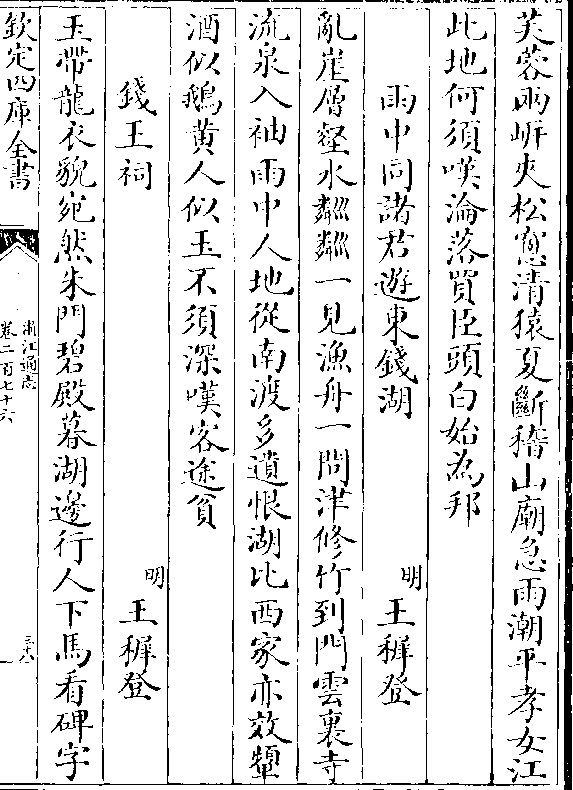 芙蓉兩㟁夾松窻清猿夏斷稽山廟急雨潮平孝女江
此地何須嘆淪落買臣頭白始為邦
雨中同諸君遊東錢湖
明
王穉登
亂崖層壑水粼粼一見漁舟一問津修竹到門雲裏寺
流泉入袖雨中人地從南渡多遺恨湖比西家亦效顰
酒似鵝黄人似玉不須深嘆客途貧
錢王祠
明
王穉登
玉帶龍衣貌宛然朱門碧殿暮湖邊行人下馬看碑字
欽定四庫全書
浙江通志
卷二百七十六
三十八